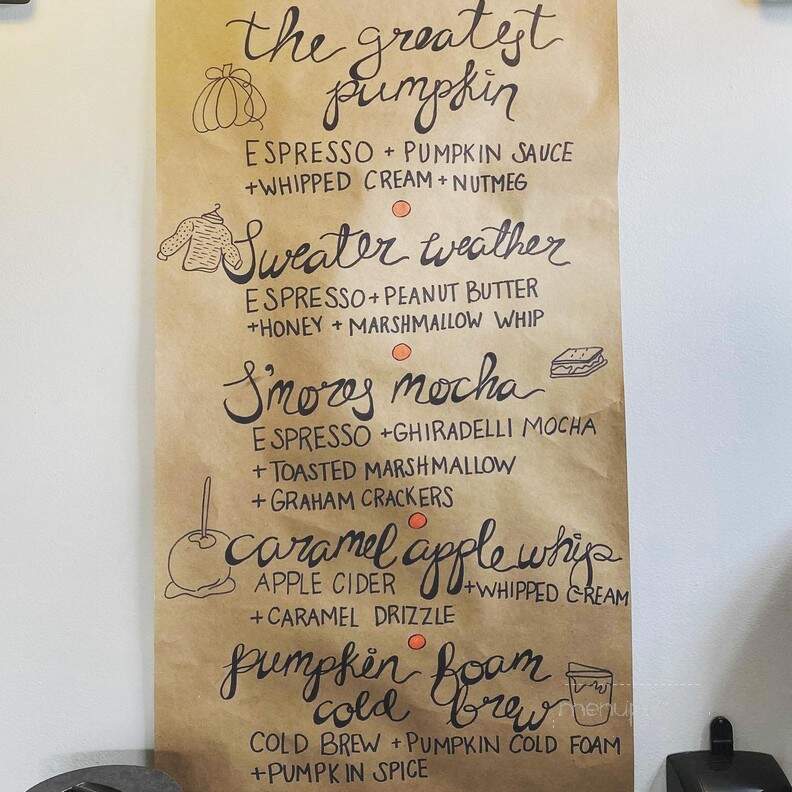 the greatest
pumpkin
ESPRESSO + PUMPKIN SAUCE
+WHIPPED CREAM + NUTMEG
Sweater weather
ESPRESSO + PEANUT BUTTER
+HONEY + MARSHMALLOW WHIP
S'mores mocha
ESPRESSO +GHIRADELLI MOCHA
+TOASTED MARSHMALLOW
+ GRAHAM CRACKERS
caramel apple whip
APPLE CIDER +WHIPPED CREAM
+CARAMEL DRIZZLE
pumpkin foam
cold brew
COLD BREW +PUMPKIN COLD FOAM
+PUMPKIN SPICE